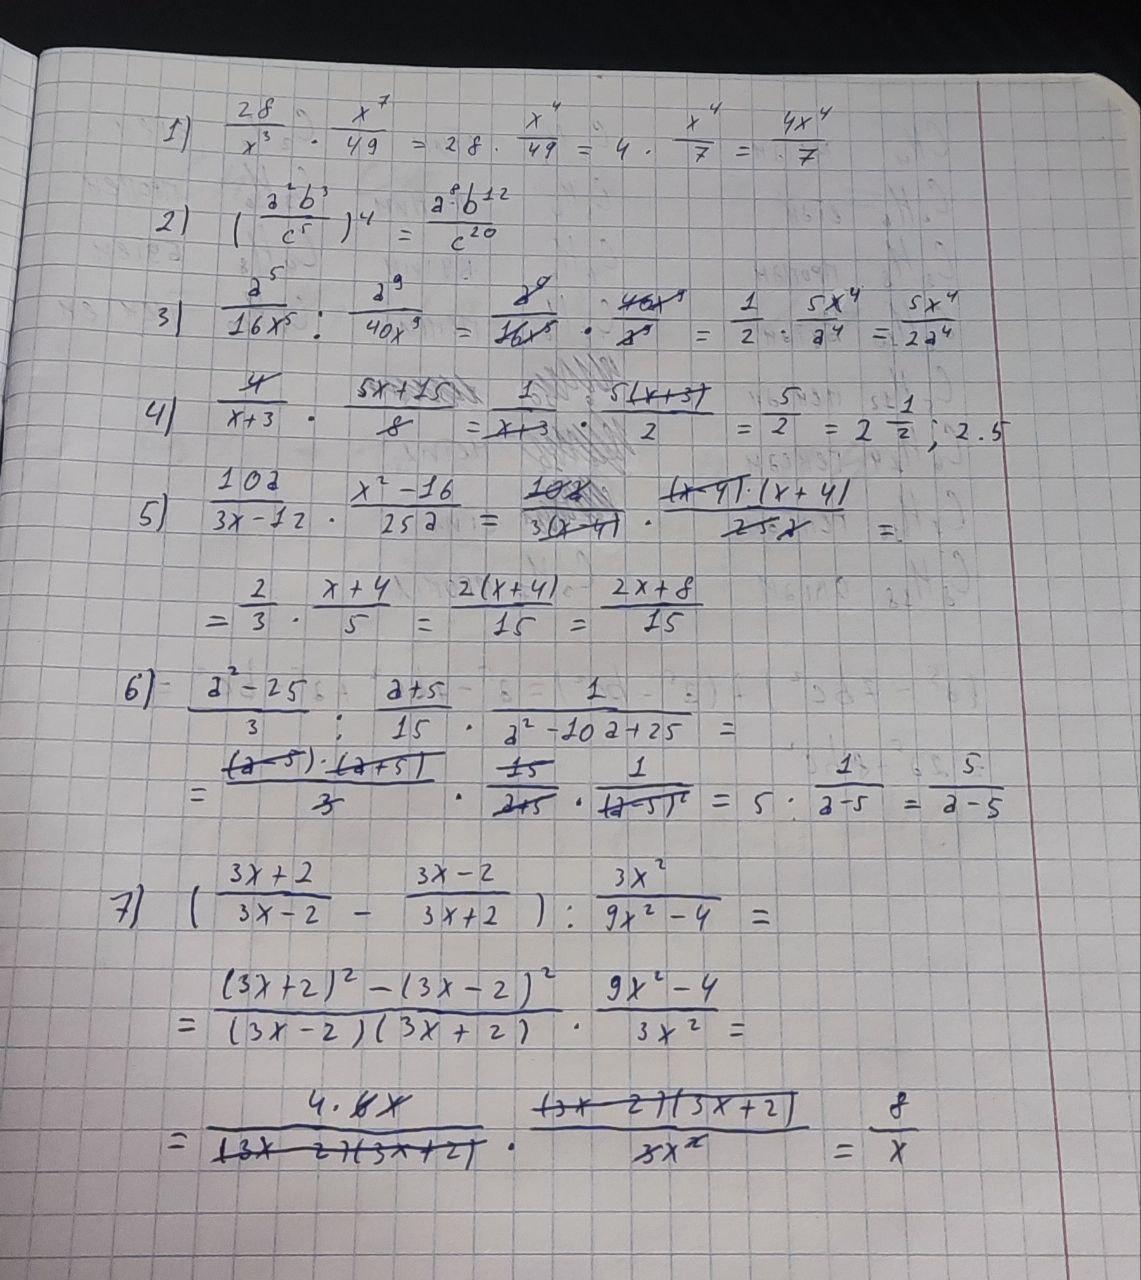 1) 28/x³ · x⁷/49 = 28 · x⁴/49 = 4 · x⁴/7 = 4x⁴/7
2) (a²b³/c⁵)⁴ = a⁸b¹²/c²⁰
3) a⁵/16x⁵ : a⁹/40x⁹ = a⁵/16x⁵ · 40x⁹/a⁹ = 1/2 · 5x⁴/a⁴ = 5x⁴/2a⁴
4) 4/x+3 · 5x+15/8 = 1/x+3 · 5(x+3)/2 = 5/2 = 2 1/2 ; 2.5
5) 10a/3x-12 · x²-16/25a = 10a/3(x-4) · (x-4)·(x+4)/25a =
= 2/3 · x+4/5 = 2(x+4)/15 = 2x+8/15
6) a²-25/3 : a+5/15 · 1/a²-10a+25 =
= (a-5)·(a+5)/3 · 15/a+5 · 1/(a-5)² = 5 · 1/a-5 = 5/a-5
7) (3x+2/3x-2 - 3x-2/3x+2) : 3x²/9x²-4 =
= (3x+2)²-(3x-2)²/(3x-2)(3x+2) · 9x²-4/3x² =
= 4·6x/(3x-2)(3x+2) · (3x-2)(3x+2)/3x² = 8/x